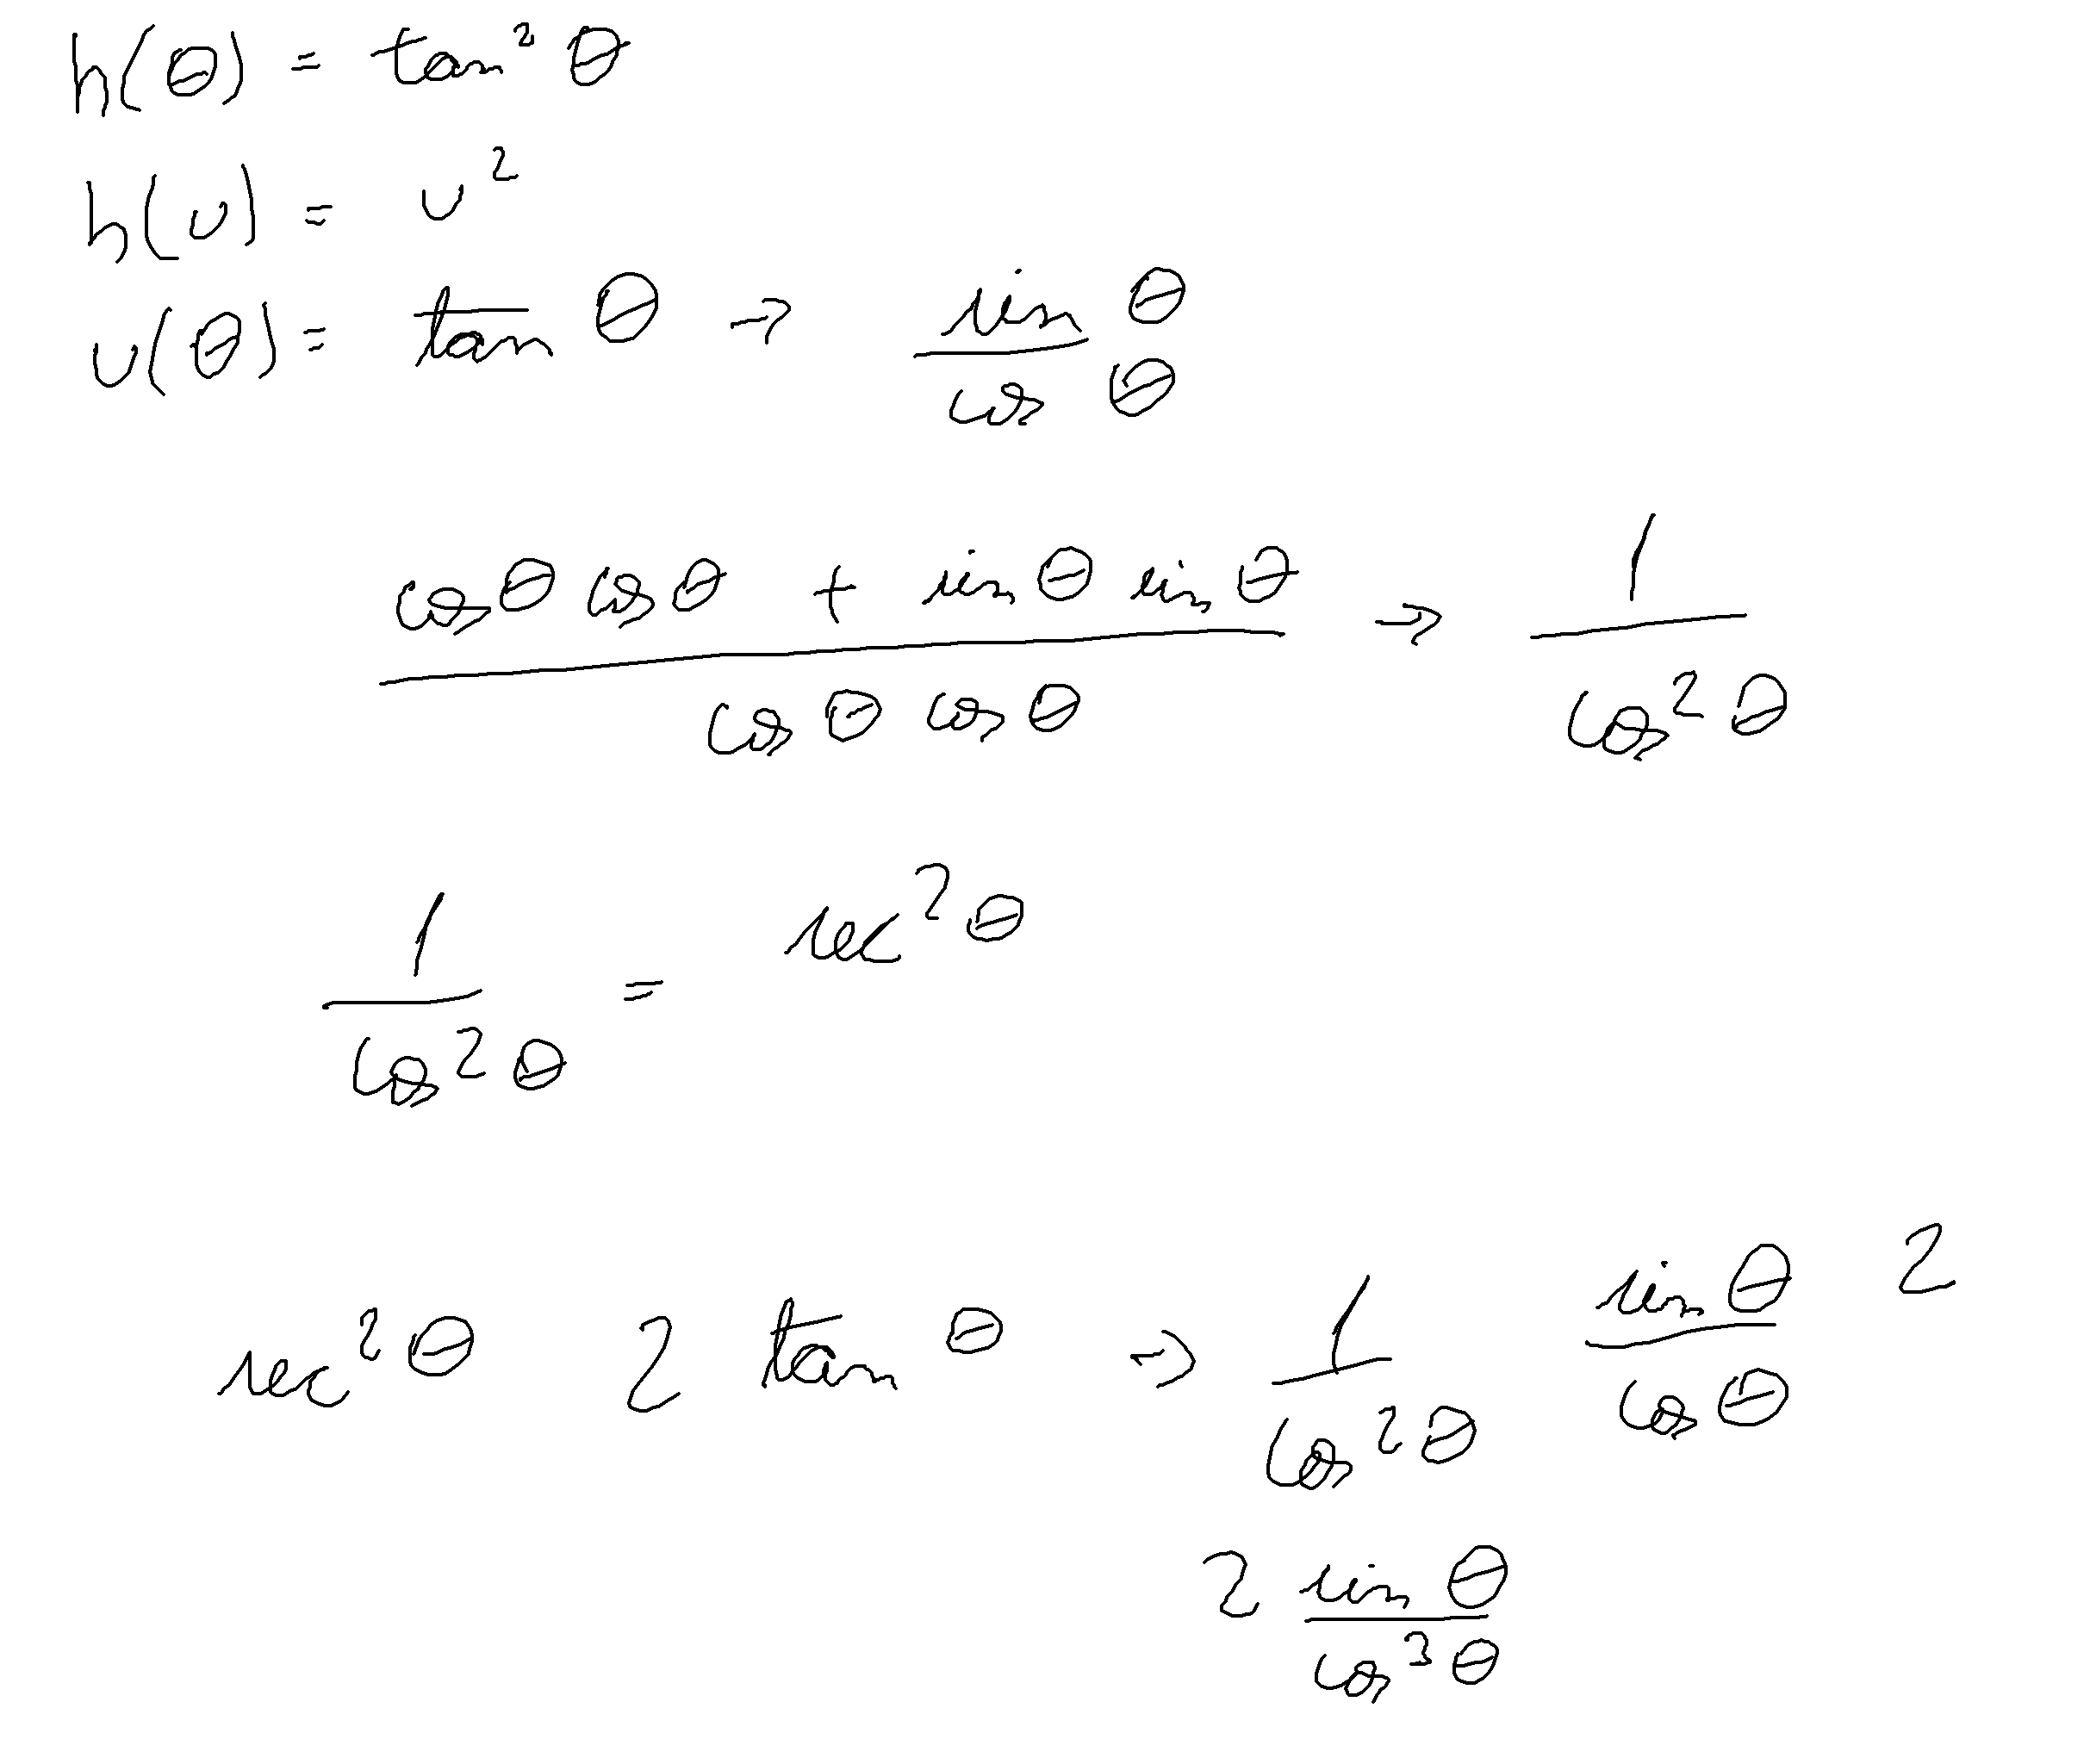 h(θ) = tan² θ
h(u) = u²
u(θ) = tan θ → sin θ / cos θ
(cos θ cos θ + sin θ sin θ) / (cos θ cos θ) → 1 / cos² θ
1 / cos² θ = sec² θ
sec² θ 2 tan θ → 1 / cos² θ sin θ / cos θ 2
2 sin θ / cos³ θ